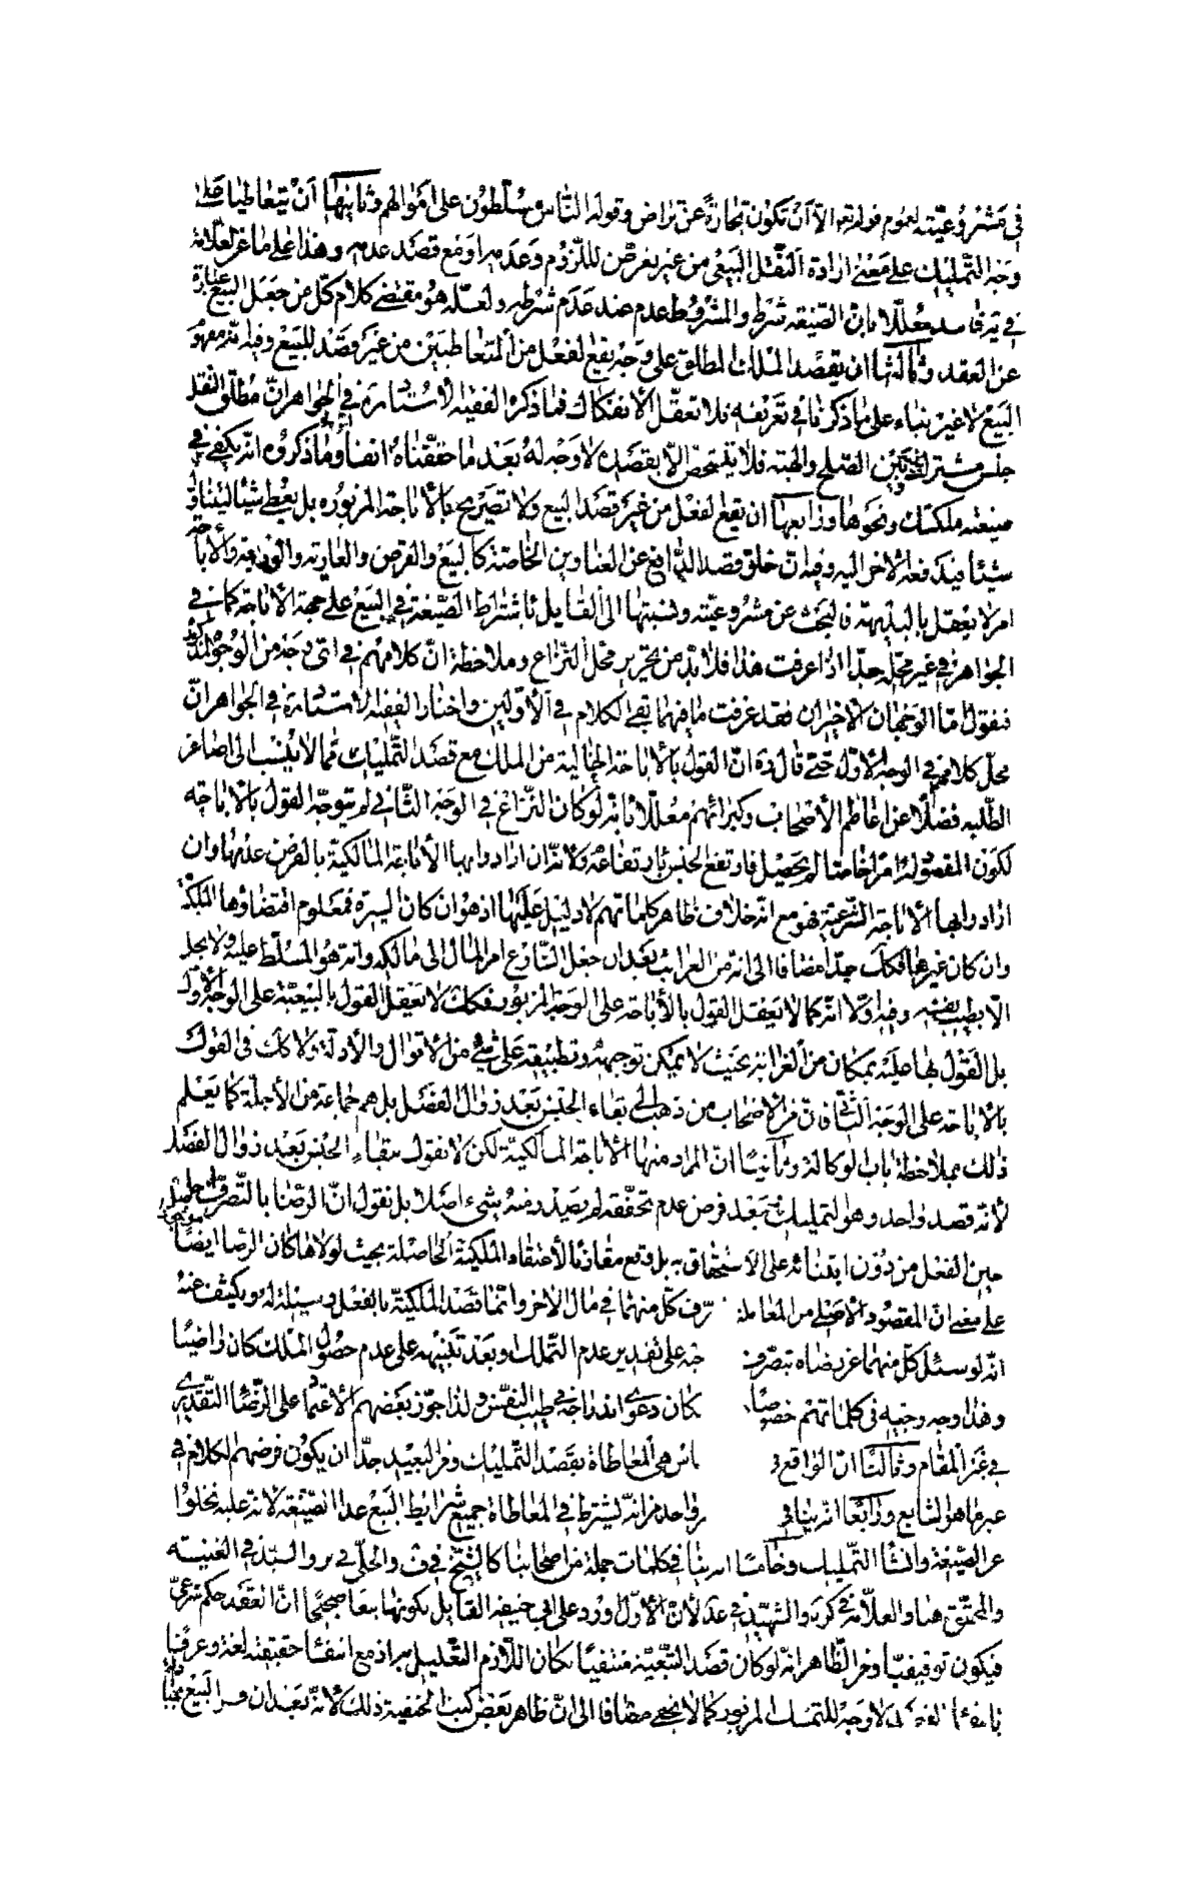 في مشروعيته لعموم قوله تع الا أن تكون تجارة عن تراض وقوله الناس مسلطون على أموالهم وثانيها أن يتعاطيا على
وجه التمليك على معنى ارادة النقل البيعي من غير تعرض للزوم وعدمه او مع قصد عدمه وهذا على ما عن العلامة
في ية فاسد معللا بان الصيغة شرط والمشروط عدم عند عدم شرطه ولعله هو مقتضى كلام كل من جعل البيع عبارة
عن العقد وثالثها ان يقصد الملك المطلق على وجه يقع الفعل من المتعاطيين من غير قصد للبيع وفيه انه مفهوم
البيع لا غير بناء على ما ذكرنا في تعريفه فلا تعقل الانفكاك فما ذكره الفقيه الاستاد ره في الجواهر ان مطلق النقل
جنس مشترك بين الصلح والهبة فلا يتمحض الا بقصده لا وجه له بعد ما حققناه انفا وما ذكروه انه يكفي في
صيغته ملكتك ونحوها ورابعها ان يقع الفعل من غير قصد البيع ولا تصريح بالأباحة المزبورة بل يعطي شيئا ليتناول
شيئا فيدفعه الاخر اليه وفيه ان خلو قصد الدافع عن العناوين الخاصة كالبيع والقرض والعارية والوديعة والاباحة
امر لا يعقل بالبديهة فالبحث عن مشروعيته ونسبتها الى القايل باشتراط الصيغة في البيع على جهة الاباحة كما في
الجواهر في غير محله جدا اذا عرفت هذا فلا بد من تحرير محل النزاع وملاحظة ان كلامهم في اي وجه من الوجوه المذكورة
فنقول اما الوجهان الاخيران فقد عرفت ما فيهما بقي الكلام في الأولين واختار الفقيه الاستاد ره في الجواهر ان
محل كلامهم في الوجه الاول حتى قال ره ان القول بالاباحة الخالية من الملك مع قصد التمليك مما لا ينسب الى اصاغر
الطلبة فضلا عن اعاظم الأصحاب وكبرائهم معللا بانه لو كان النزاع في الوجه الثاني لم يتوجه القول بالاباحة
لكون المقصود امرا خاصا لم يحصل فارتفع الجنس بارتفاعه ولانه ان ارادوا بها الأباحة المالكية بالفرض عدمها وان
ارادوا بها الاباحة الشرعية فهو مع انه خلاف ظاهر كلماتهم لا دليل عليها اذ هو ان كان السيرة فمعلوم اقتضاؤها الملكية
وان كان غيرها فكك جدا مضافا الى انه من الغرائب بعد ان جعل الشارع امر المال الى مالكه وانه هو المسلط عليه ولا يحل
الا بطيب نفسه وفيه اولا انه كما لا يعقل القول بالأباحة على الوجه المزبور فكك لا يعقل القول بالبيعية على الوجه الاول
بل القول بها عليه بمكان من الغرابة بحيث لا يمكن توجيهه وتطبيقه على شئ من الاقوال والأدلة ولا كك في القول
بالأباحة على الوجه الثاني فان من الاصحاب من ذهب الى بقاء الجنس بعد زوال الفصل بل هم جماعة من الأجلة كما يعلم
ذلك بملاحظة باب الوكالة وثانيا ان المراد منها الأباحة المالكية لكن لا نقول ببقاء الجنس بعد زوال الفصل
لأنه قصد واحد وهو التمليك بعد فرض عدم تحققه لم يصدر منه شئ اصلا بل نقول ان الرضا بالتصرف حاصل
حين الفعل من دون ابتنائه على الاستحقاق به بل وقع مقارنا لاعتقاد الملكية الحاصلة بحيث لولاها كان الرضا ايضا موجودا
على معنى ان المقصود الأصلي من المعاملة رف كل منهما في مال الاخر وانما قصد الملكية بالفعل وسيلة له ويكشف عنه
انه لو سئل كل منهما عن رضاه بتصرف جه على تقدير عدم التملك وبعد تنبيهه على عدم حصول الملك كان راضيا
وهذا وجه وجيه في كلماتهم خصوصا كان دعوى اندراجه في طيب النفس ولذا جوز بعضهم الاعتماد على الرضا التقديري
في غير المقام وثالثا ان الواقع في اس هي المعاطاة بقصد التمليك ومن البعيد جدا ان يكون فرضهم الكلام في
غير ما هو الشايع ورابعا انه ينافي واحد من انه يشترط في المعاطاة جميع شرايط البيع عدا الصيغة لانه عليه تخلوا
عن الصيغة وانشا التمليك وخامسا انه ينافي كلمات جملة من اصحابنا كالشيخ في ف والحلي في ير والسيد في الغنية
والمحقق هنا والعلامة في كره والشهيد في عد لان الأول ورد على ابي حنيفة القايل بكونها بيعا صحيحا ان العقد حكم شرعي
فيكون توقيفيا ومن الظاهر انه لو كان قصد التبعية منتفيا لكان اللازم التعليل به اذ مع انتفائه حقيقة لغة وعرفا
لا وجه للتمسك المزبور كما لا يخفى مضافا الى ان ظاهر بعض كتب الحنفية ذلك لانه بعد ان